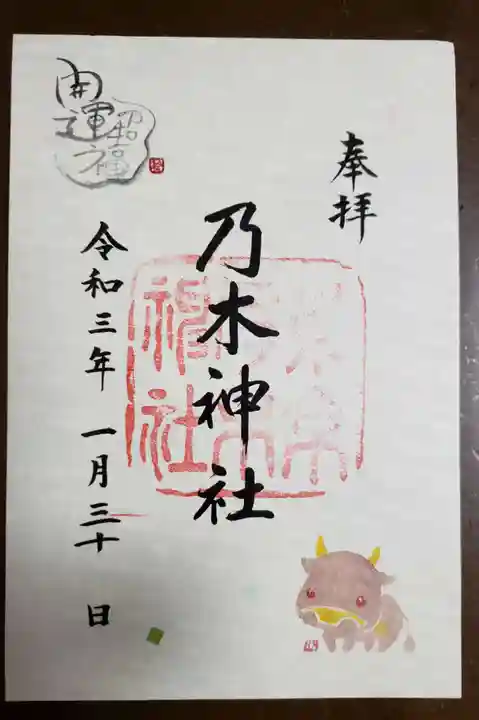 奉拝
乃木神社
令和三年 一月三十日
開運
招福